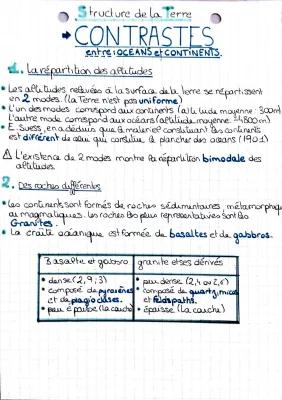 Structure de la Terre
→ CONTRASTES
entre : OCEANS et CONTINENTS.
1. La répartition des altitudes
• Les altitudes relevées à la surface de la Terre se répartissent
en 2 modes. (la Terre n'est pas uniforme)
• L'un des modes correspond aux continents (altitude moyenne : 300m)
L'autre mode correspond aux océans (altitude moyenne : -4800m)
• E. Suess, en a déduis que le matériel constituant les continents
est différent de celui qui constitue le plancher des océans (1901)
⚠ L'existence de 2 modes montre la répartition bimodale des
altitudes.
2. Des roches différentes
• Les continents sont formés de roches sédimentaires, métamorphiques
ou magmatiques. Les roches les plus représentatives sont les
Granites.
• La croûte océanique est formée de basaltes et de gabbros.
Basalte et gabbro | granite et ses dérivés
• dense (2,9 ; 3) | • peu dense
• composé de pyroxènes | • composé de quartz, micas
et de plagioclases. | et feldspaths.
• peu épaisse (la couche) | • épaisse (la couche)